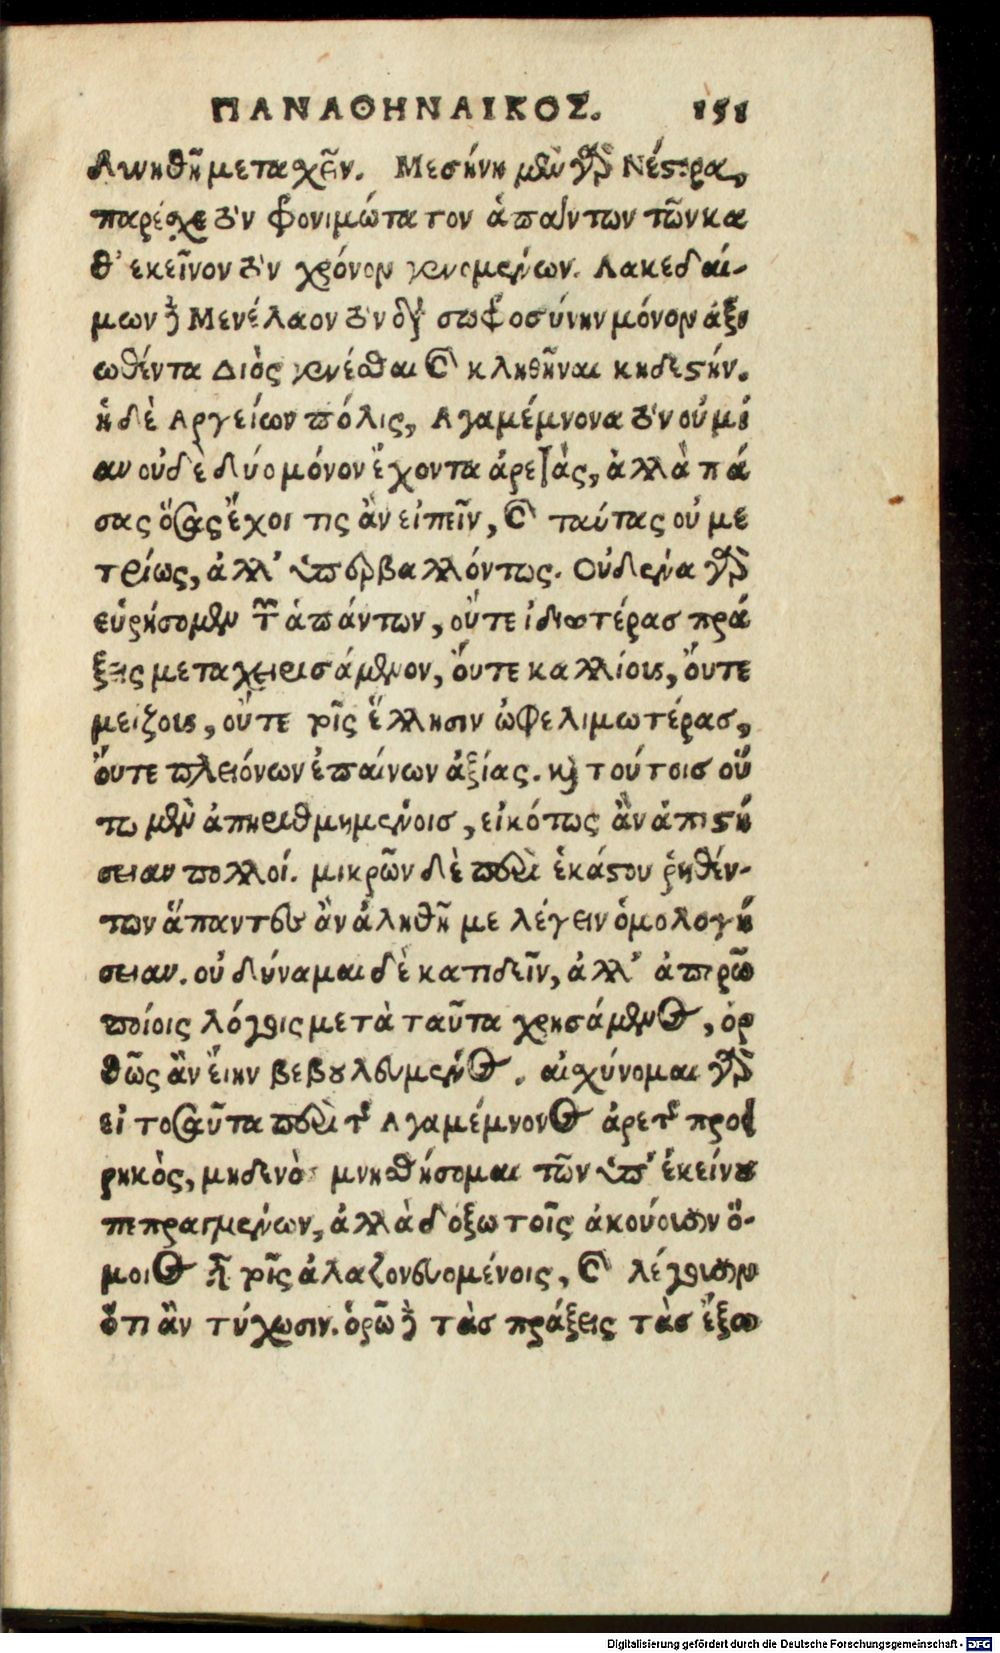 ΠΑΝΑΘΗΝΑΙΚΟΣ. 151
δυνηθῆ μετασχεῖν. Μεσήνη μὲν γὰρ Νέστορα,
παρέσχε τὸν φρονιμώτατον ἁπάντων τῶν κα
θ' εκεῖνον τὸν χρόνον γενομένων. Λακεδαί-
μων δὲ Μενέλαον τὸν διὰ σωφροσύνην μόνον ἀξι
ωθέντα Διὸς γενέσθαι καὶ κληθῆναι κηδεστήν.
ἡ δὲ Αργείων πόλις, Αγαμέμνονα τὸν οὐ μί
αν οὐδὲ δύο μόνον ἔχοντα ἀρετὰς, ἀλλὰ πά
σας ὅσας ἔχοι τις ἂν εἰπεῖν, καὶ ταύτας οὐ με
τρίως, ἀλλ' ὑπερβαλλόντως. Οὐδένα γὰρ
εὑρήσομεν τῶν ἁπάντων, οὔτε ἰδιωτέρας πρά
ξεις μεταχειρισάμενον, ὄυτε καλλίους, ὄυτε
μείζους, οὔτε τοῖς ἕλλησιν ὠφελιμωτέρας,
ὄυτε πλειόνων ἐπαίνων ἀξίας. καὶ τούτοις οὕ
τω μὲν ἀπηριθμημένοις, εἰκότως ἂν ἀπιστή
σειαν πολλοί. μικρῶν δὲ περὶ ἑκάστου ῥηθέν-
των ἅπαντες ἂν ἀληθῆ με λέγειν ὁμολογή
σειαν. οὐ δύναμαι δὲ κατιδεῖν, ἀλλ' ἀπορῶ
ποίοις λόγοις μετὰ ταῦτα χρησάμενος, ὀρ
θῶς ἂν ἔιην βεβουλευμένος. αἰσχύνομαι γὰρ
εἰ τοσαῦτα περὶ τῆς Αγαμέμνονος ἀρετῆς προει
ρηκὸς, μηδενὸς μνησθήσομαι τῶν ὑπ' ἐκείνου
πεπραγμένων, ἀλλὰ δόξω τοῖς ἀκούουσιν ὅ-
μοιος εἶναι τοῖς ἀλαζονευομένοις, καὶ λέγουσιν
ὅτι ἂν τύχωσιν. ὁρῶ δὲ τὰς πράξεις τὰς ἔξω
Digitalisierung gefördert durch die Deutsche Forschungsgemeinschaft - DFG